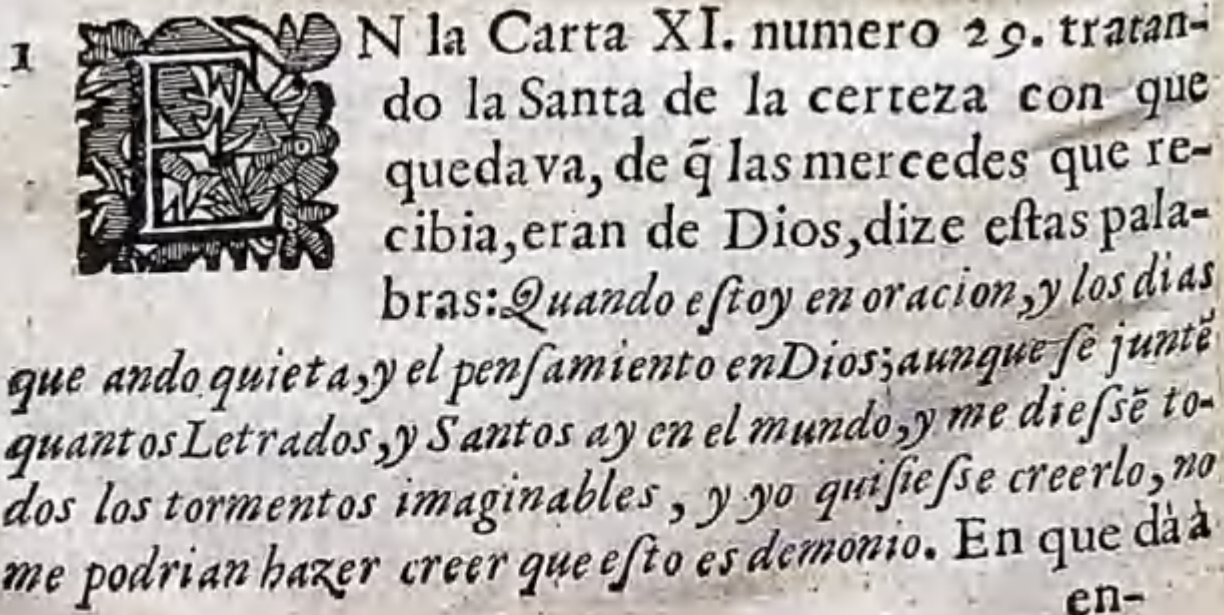 1 EN la Carta XI. numero 29. tratan-
do la Santa de la certeza con que
quedava, de q̃ las mercedes que re-
cibia, eran de Dios, dize eſtas pala-
bras: Quando eſtoy en oracion, y los dias
que ando quieta, y el penſamiento en Dios; aunque ſe juntẽ
quantos Letrados, y Santos ay en el mundo, y me dieſsẽ to-
dos los tormentos imaginables, y yo quiſieſse creerlo, no
me podrian hazer creer que eſto es demonio. En que dà à
en-